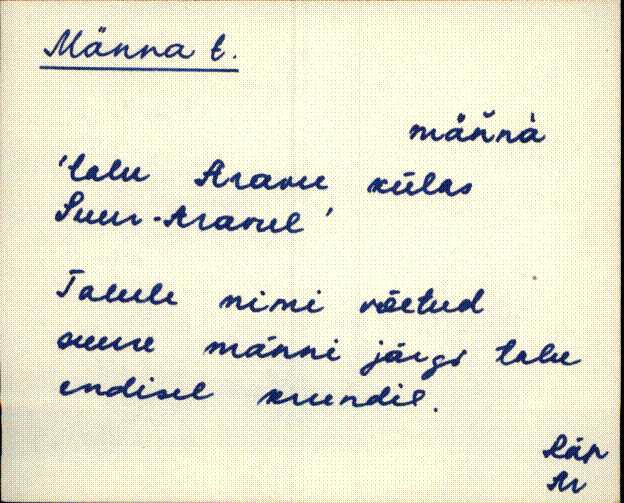 Männa t.
mäǹnà
'talu Aravu külas
Suur-Aravul'
Talule nimi võetud
suure männi järgi talu
endisel krundil.
Räp
Ar